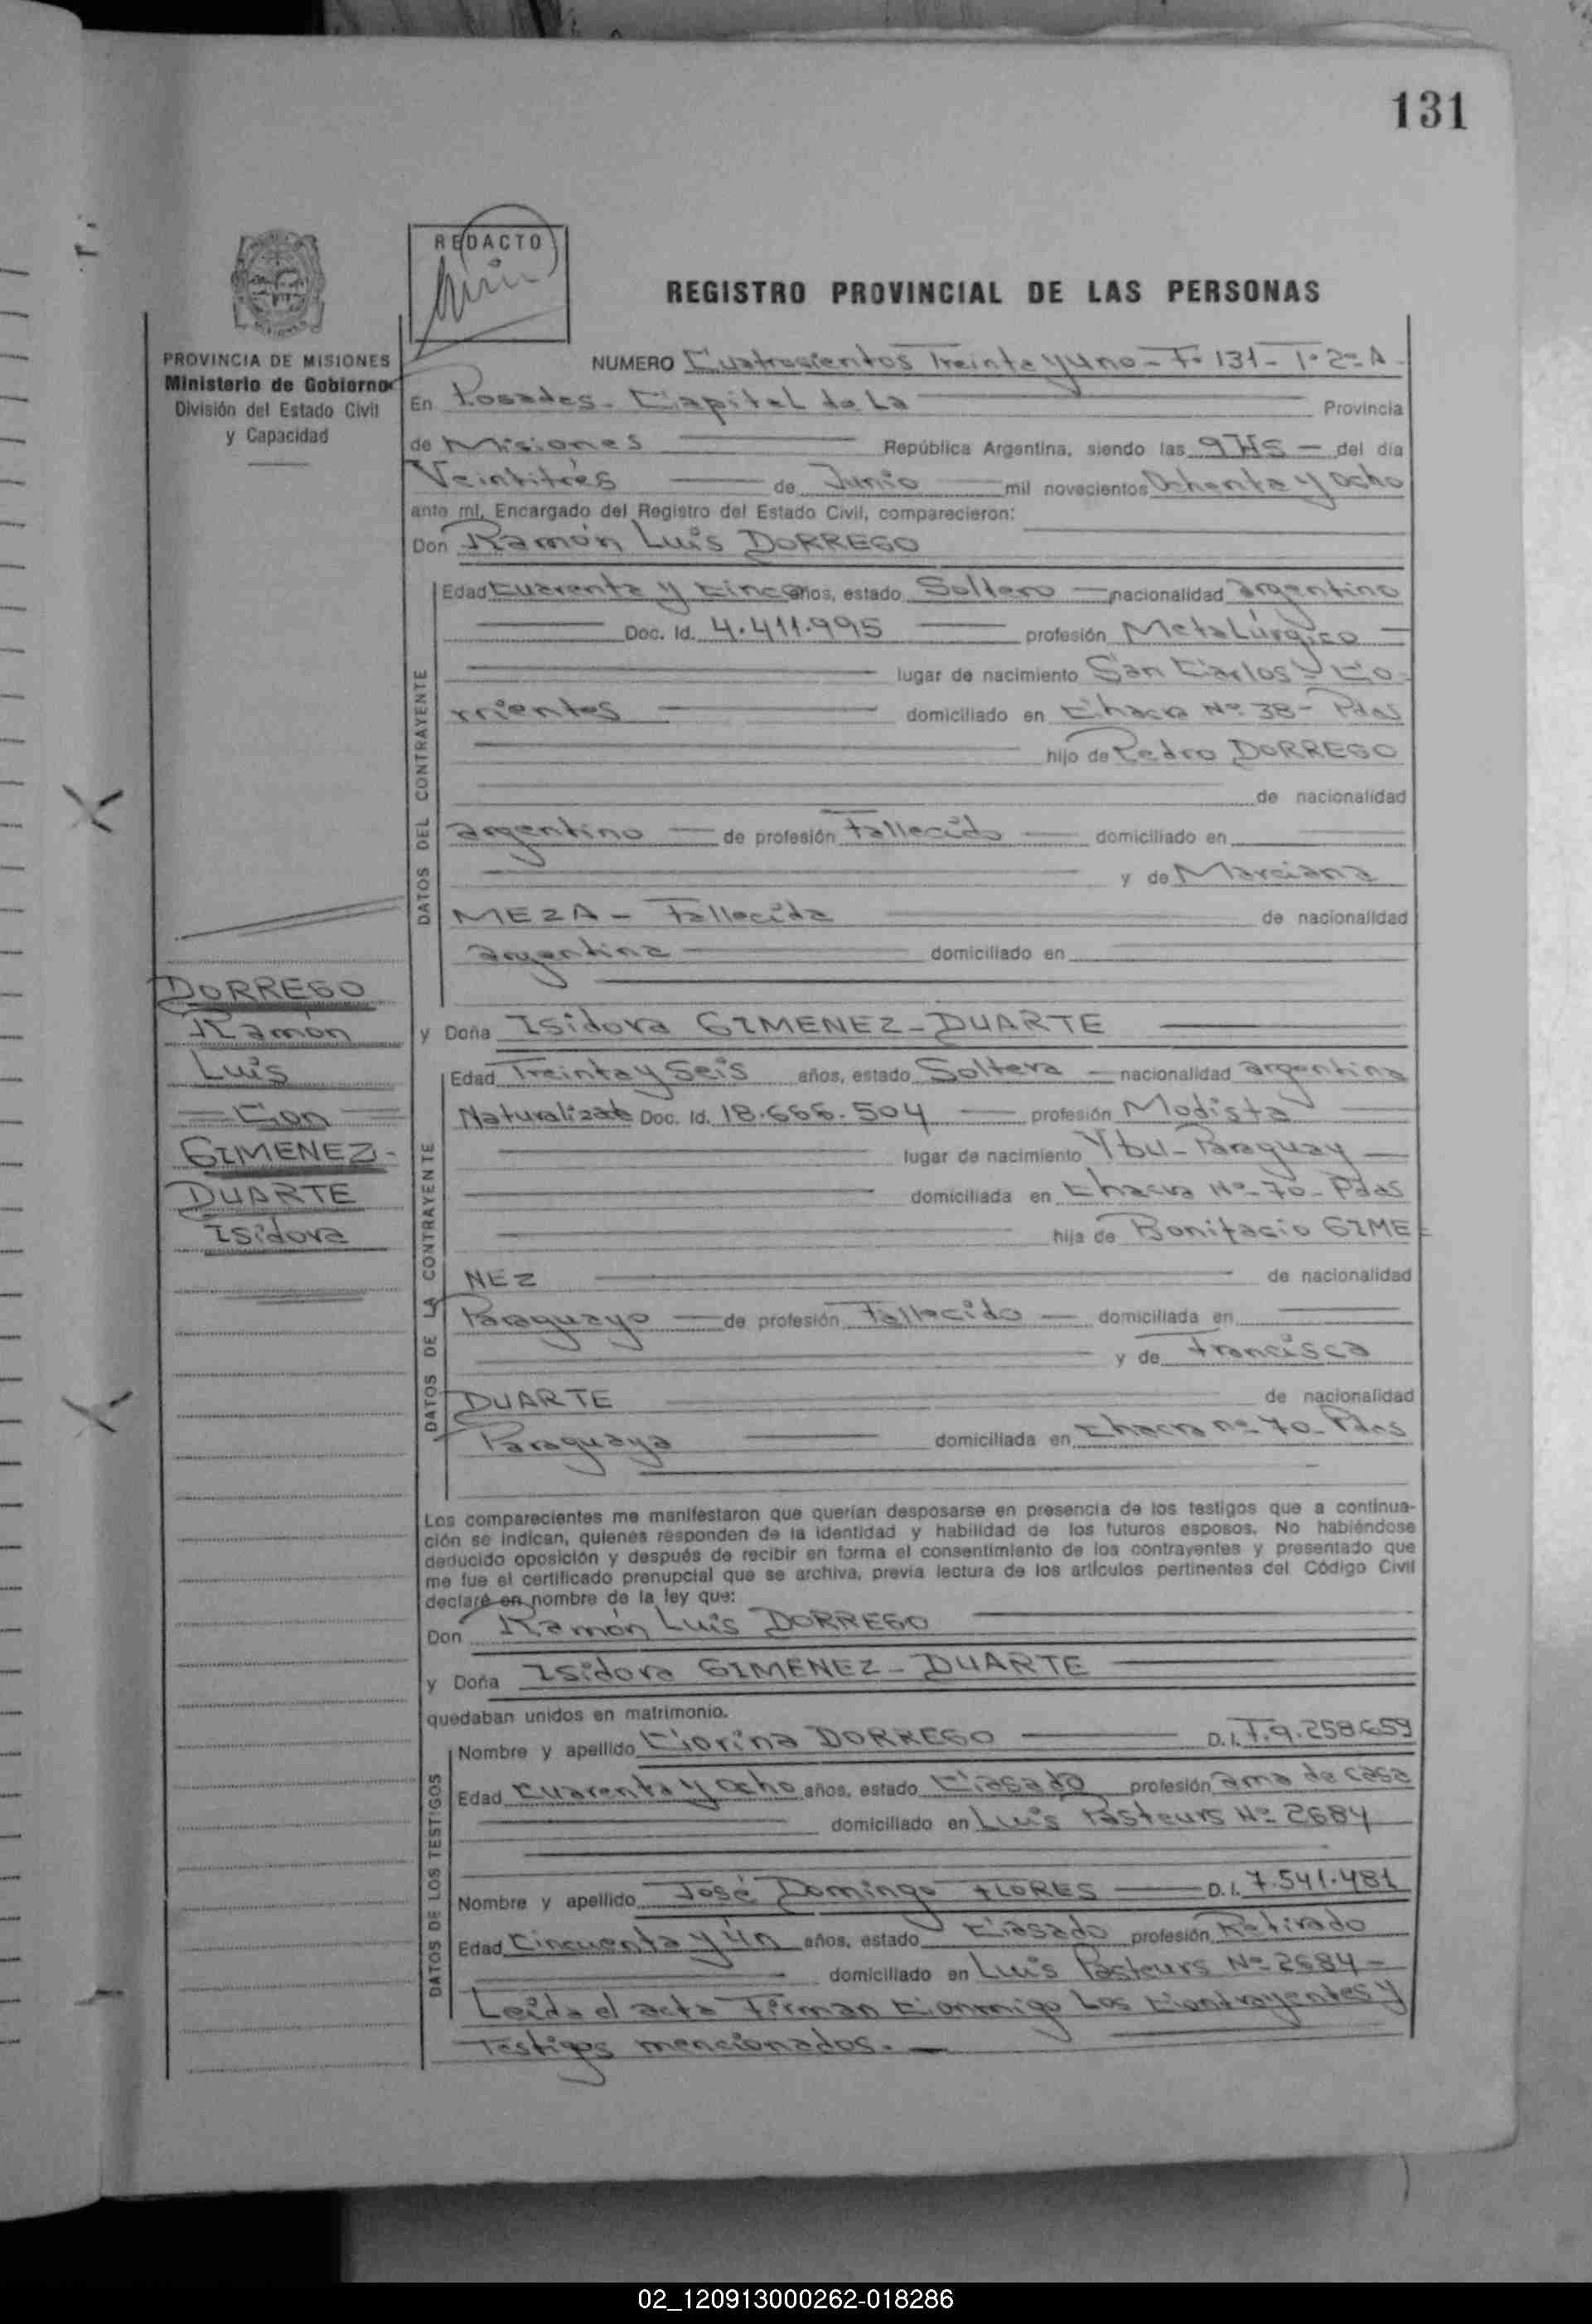 131
REDACTO
REGISTRO PROVINCIAL DE LAS PERSONAS
PROVINCIA DE MISIONES
Ministerio de Gobierno
División del Estado Civil
y Capacidad
NUMERO Cuatrosientos Treinta y uno - F° 131 - T° 2° A -
En Posadas - Capital de La Provincia
de Misiones República Argentina, siendo las 9 HS - del día
Veintitrés de Junio mil novecientos Ochenta y ocho
ante mí, Encargado del Registro del Estado Civil, comparecieron:
Don Ramón Luis DORREGO
DATOS DEL CONTRAYENTE
Edad Cuarenta y Cinco años, estado Soltero nacionalidad argentino
Doc. Id. 4.411.995 profesión Metalúrgico
lugar de nacimiento San Carlos - Co
rrientes domiciliado en Chacra N° 38 - Pdas
hijo de Pedro DORREGO
de nacionalidad
argentino de profesión Fallecido domiciliado en
y de Marciana
MEZA - Fallecida de nacionalidad
argentina domiciliado en
DORREGO
Ramón
Luis
= Con =
GIMENEZ -
DUARTE
Isidora
y Doña Isidora GIMENEZ - DUARTE
DATOS DE LA CONTRAYENTE
Edad Treinta y Seis años, estado Soltera nacionalidad argentina
Naturalizada Doc. Id. 18.666.504 profesión Modista
lugar de nacimiento Ybu - Paraguay
domiciliada en Chacra N° 70 - Pdas
hija de Bonifacio GIME =
NEZ de nacionalidad
Paraguayo de profesión Fallecido domiciliada en
y de Francisca
DUARTE de nacionalidad
Paraguaya domiciliada en Chacra n° 70 - Pdas
Los comparecientes me manifestaron que querían desposarse en presencia de los testigos que a continua-
ción se indican, quienes responden de la identidad y habilidad de los futuros esposos. No habiéndose
deducido oposición y después de recibir en forma el consentimiento de los contrayentes y presentado que
me fue el certificado prenupcial que se archiva, previa lectura de los artículos pertinentes del Código Civil
declaré en nombre de la ley que:
Don Ramón Luis DORREGO
y Doña Isidora GIMENEZ - DUARTE
quedaban unidos en matrimonio.
DATOS DE LOS TESTIGOS
Nombre y apellido Corina DORREGO D. I. F. 9.258.659
Edad Cuarenta y ocho años, estado Casado profesión ama de casa
domiciliado en Luis Pasteurs N° 2684
Nombre y apellido José Domingo FLORES D. I. 7.541.481
Edad Cincuenta y Un años, estado Casado profesión Retirado
domiciliado en Luis Pasteurs N° 2684 -
Leida el acta Firman Conmigo Los Contrayentes y
Testigos mencionados. -
02_120913000262-018286